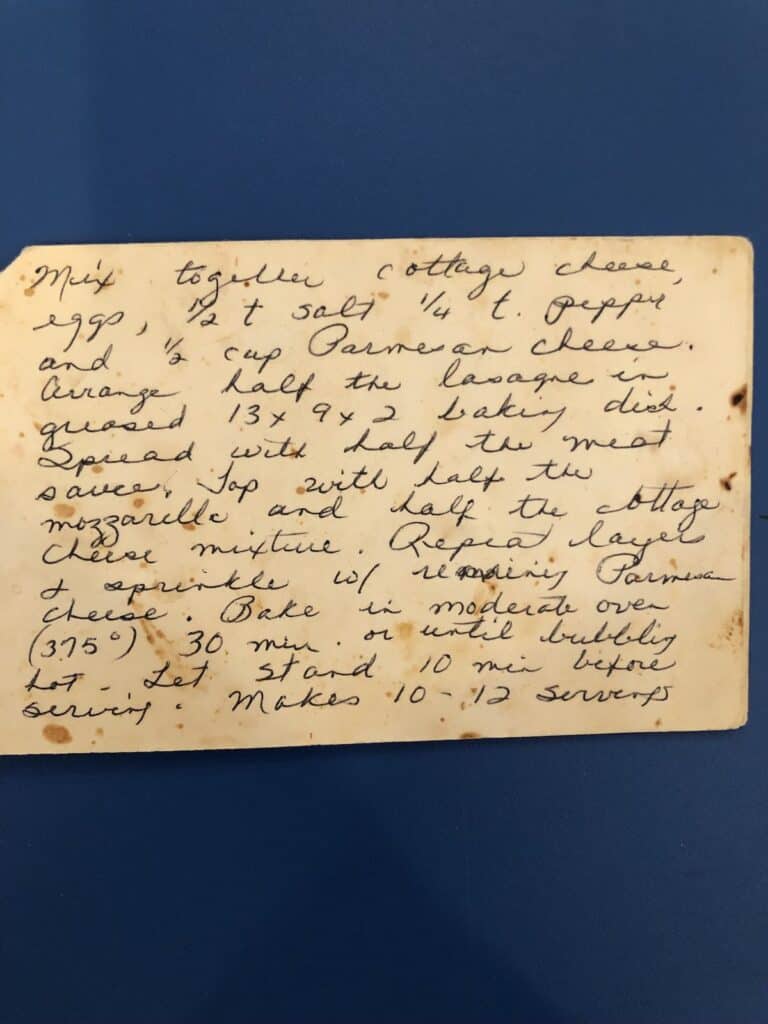 Mix together cottage cheese,
eggs, 1/2 t salt 1/4 t. pepper
and 1/2 cup Parmesan cheese.
Arrange half the lasagne in
greased 13 x 9 x 2 baking dish.
Spread with half the meat
sauce. Top with half the
mozzarella and half the cottage
cheese mixture. Repeat layers
& sprinkle w/ remaining Parmesan
cheese. Bake in moderate oven
(375°) 30 min. or until bubbling
hot - Let stand 10 min before
serving. Makes 10-12 servings